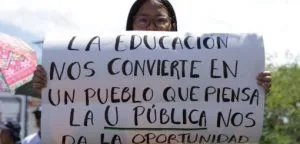 LA EDUCACIÓN
NOS CONVIERTE EN
UN PUEBLO QUE PIENSA
LA U PÚBLICA NOS
DA LA OPORTUNIDAD